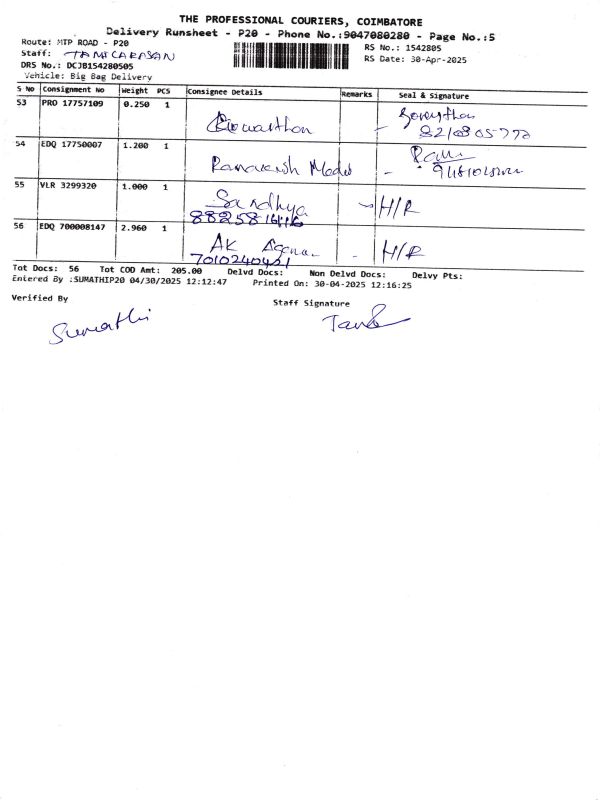 THE PROFESSIONAL COURIERS, COIMBATORE
Delivery Runsheet - P20 - Phone No.:9047080280 - Page No.:5
Route: MTP ROAD - P20
RS No.: 1542805
Staff: TAMILARASAN
RS Date: 30-Apr-2025
DRS No.: DCJB154280505
Vehicle: Big Bag Delivery
S No Consignment No Weight PCS Consignee Details Remarks Seal & Signature
53 PRO 17757109 0.250 1
54 EDQ 17750007 1.200 1
55 VLR 3299320 1.000 1 Sandhya H/R
56 EDQ 700008147 2.960 1 AK H/R
7010240421
Tot Docs: 56 Tot COD Amt: 205.00 Delvd Docs: Non Delvd Docs: Delvy Pts:
Entered By :SUMATHIP20 04/30/2025 12:12:47 Printed On: 30-04-2025 12:16:25
Verified By Staff Signature
Sumathi